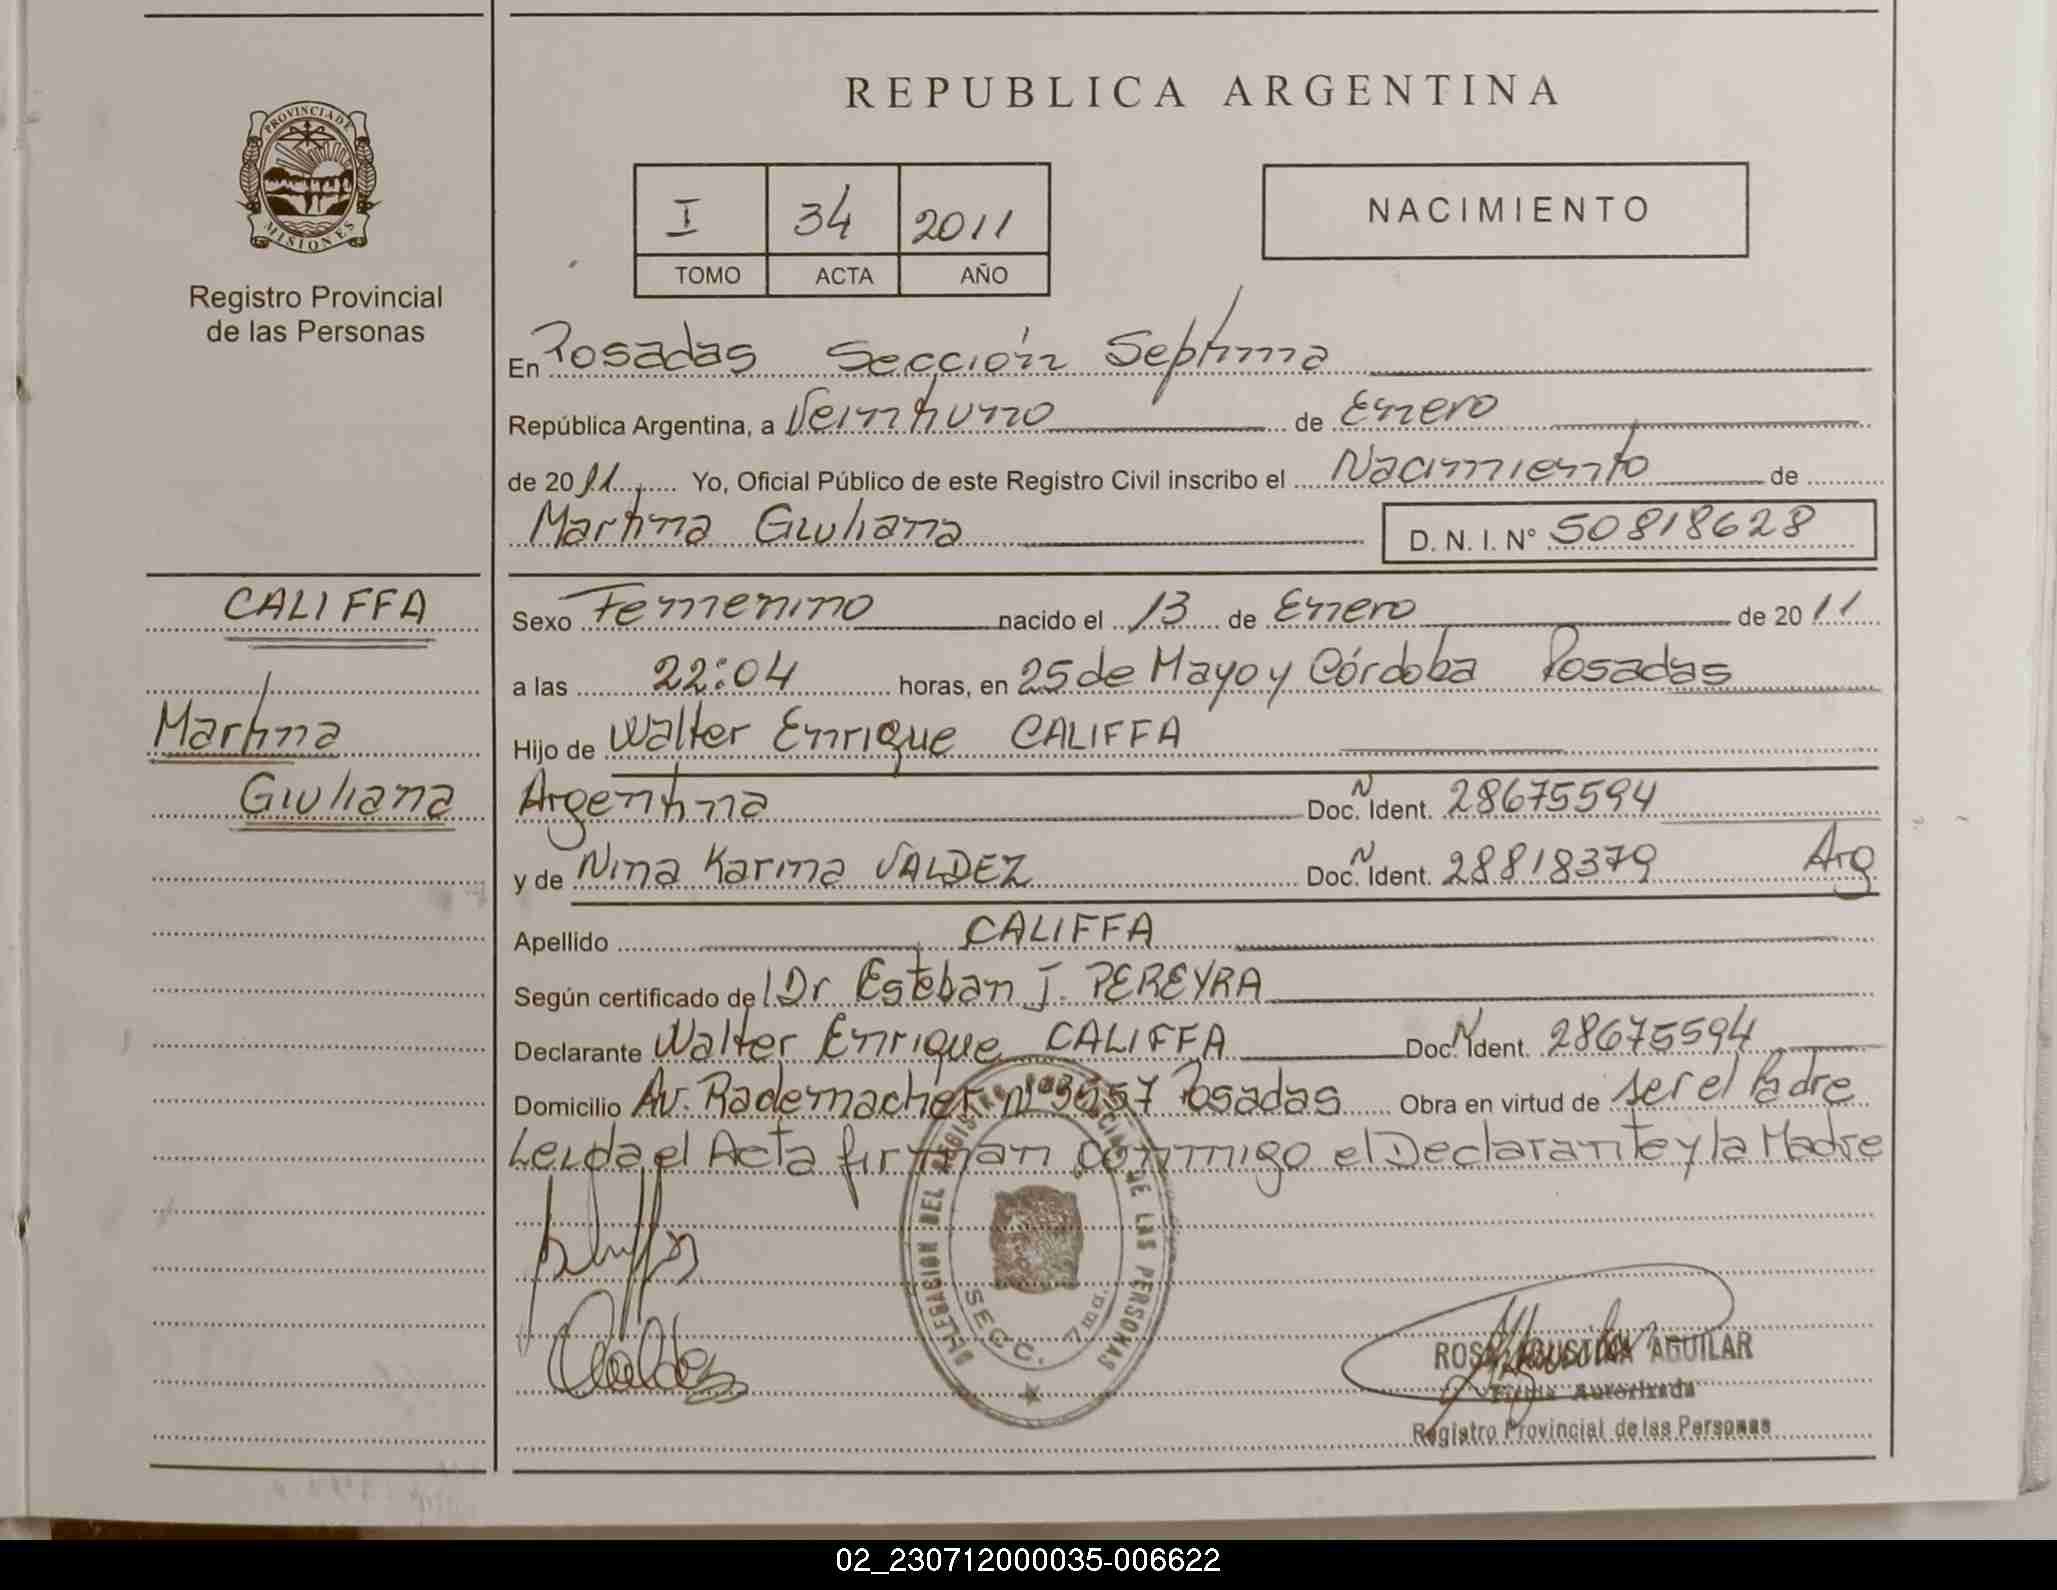 REPUBLICA ARGENTINA
PROVINCIA DE
MISIONES
Registro Provincial
de las Personas
I 34 2011
TOMO ACTA AÑO
NACIMIENTO
En Posadas Sección Septima
República Argentina, a Veintiuno de Enero
de 2011 Yo, Oficial Público de este Registro Civil inscribo el Nacimiento de
Martina Giuliana D. N. I. N° 50818628
CALIFFA
Martina
Giuliana
Sexo Femenino nacido el 13 de Enero de 2011
a las 22:04 horas, en 25 de Mayo y Córdoba Posadas
Hijo de Walter Enrique CALIFFA
Argentina Doc. N Ident. 28675594
y de Nina Karina VALDEZ Doc. N Ident. 28818379 Arg
Apellido CALIFFA
Según certificado del Dr Esteban J. PEREYRA
Declarante Walter Enrique CALIFFA Doc. N Ident. 28675594
Domicilio Av. Rademacher n° 3557 Posadas Obra en virtud de ser el Padre
Leida el Acta firman conmigo el Declarante y la Madre
DELEGACION DEL REGISTRO PROVINCIAL DE LAS PERSONAS
SECC. 7ma.
ROSA AGUSTINA AGUILAR
Firma Autorizada
Registro Provincial de las Personas
02_230712000035-006622